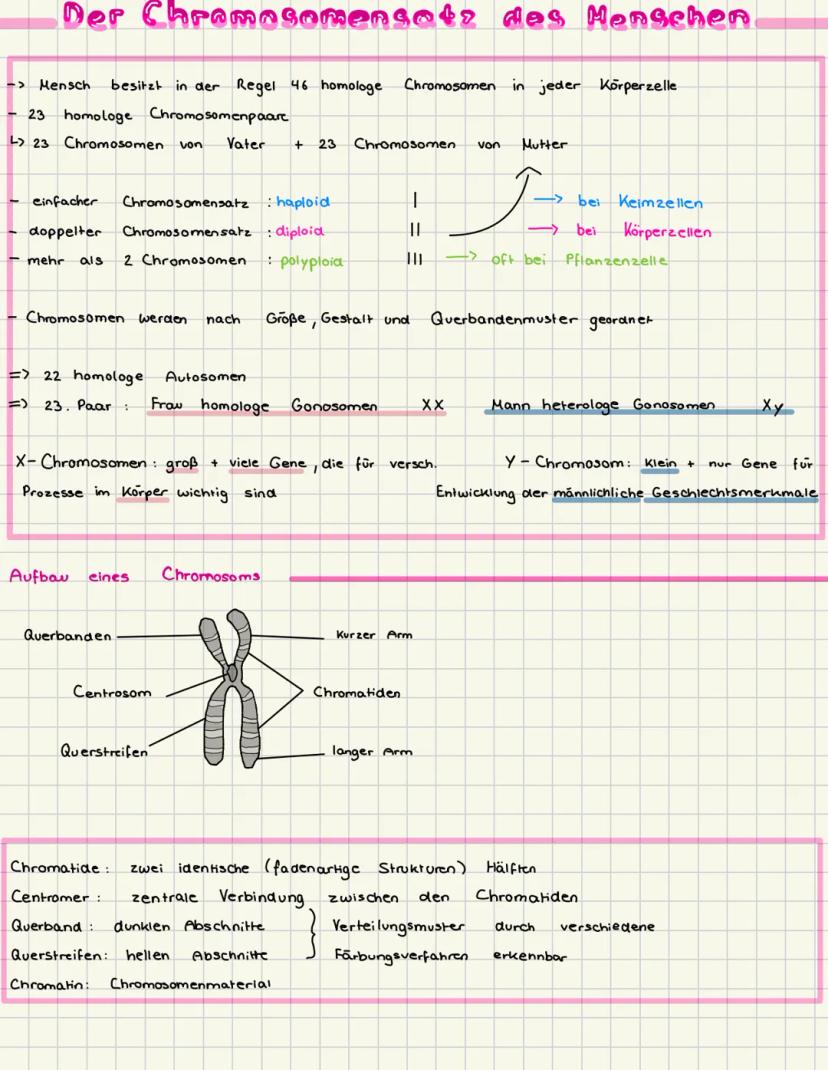 Der Chromosomensatz des Menschen
-> Mensch besitzt in der Regel 46 homologe Chromosomen in jeder Körperzelle
- 23 homologe Chromosomenpaare
↳ 23 Chromosomen von Vater + 23 Chromosomen von Mutter
- einfacher Chromosomensatz : haploid | → bei Keimzellen
- doppelter Chromosomensatz : diploid || → bei Körperzellen
- mehr als 2 Chromosomen : polyploid ||| → oft bei Pflanzenzelle
- Chromosomen werden nach Größe, Gestalt und Querbandenmuster geordnet
=> 22 homologe Autosomen
=> 23. Paar : Frau homologe Gonosomen XX Mann heterologe Gonosomen Xy
X-Chromosomen: groß + viele Gene, die für versch. Y-Chromosom: Klein + nur Gene für
Prozesse im Körper wichtig sind Entwicklung der männliche Geschlechtsmerkmale
Aufbau eines Chromosoms
Querbanden Kurzer Arm
Centrosom Chromatiden
Querstreifen langer Arm
Chromatide: zwei identische (fadenartige Strukturen) Hälften
Centromer: zentrale Verbindung zwischen den Chromatiden
Querband: dunklen Abschnitte } Verteilungsmuster durch verschiedene
Querstreifen: hellen Abschnitte Färbungsverfahren erkennbar
Chromatin: Chromosomenmaterial